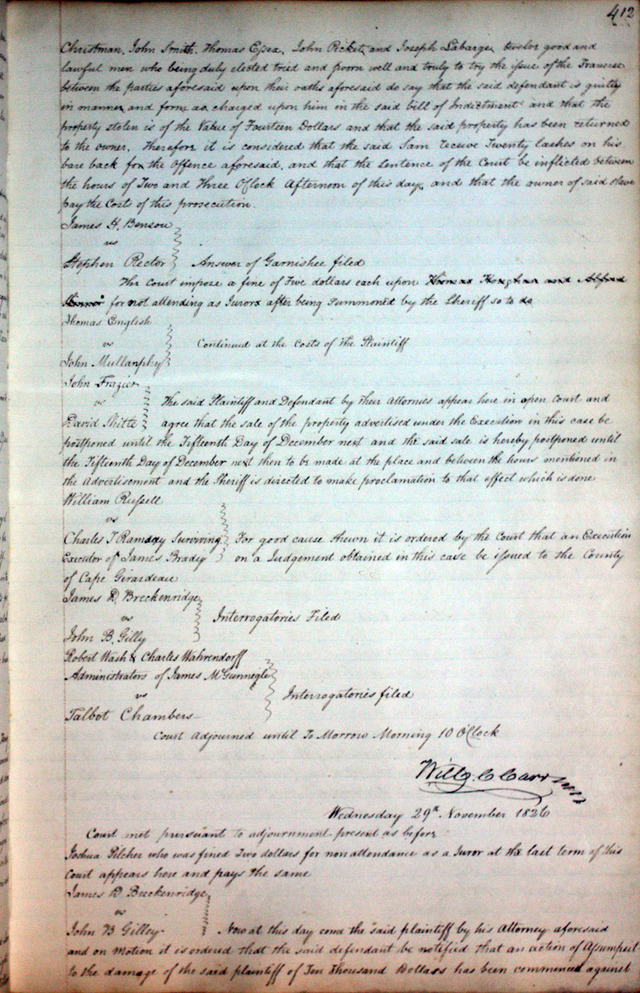 412
Christman, John Smith, Thomas Essex, John Pickett, and Joseph Labarge, twelve good and
lawful men who being duly elected tried and sworn well and truly to try the issue of the Traverse
between the parties aforesaid upon their oaths aforesaid do say that the said defendant is guilty
in manner and form as charged upon him in the said bill of Indictment and that the
property stolen is of the Value of Fourteen Dollars and that the said property has been returned
to the owner. Therefore it is considered that the said Sam receive Twenty lashes on his
bare back for the Offence aforesaid, and that the sentence of the Court be inflicted between
the hours of Two and Three OClock Afternoon of this day, and that the owner of said slave
pay the Costs of this prosecution.
James H. Benson
vs
Stephen Rector Answer of Garnishee filed
The Court impose a fine of Five dollars each upon Thomas and Alfred
for not attending as Jurors after being summoned by the Sheriff so to do
Thomas English
vs Continued at the Costs of the Plaintiff
John Mullanphy
John Frazier
vs The said Plaintiff and Defendant by their Attornies appear here in open Court and
David Shitte agree that the sale of the property advertised under the Execution in this case be
postponed until the Fifteenth Day of December next and the said sale is hereby postponed until
the Fifteenth Day of December next then to be made at the place and between the hours mentioned in
the Advertisement and the Sheriff is directed to make proclamation to that effect which is done
William Russell
vs
Charles T Ramsay Surviving For good cause shewn it is ordered by the Court that an Execution
Executor of James Brady on a Judgement obtained in this case be issued to the County
of Cape Girardeau
James D. Breckenridge
vs Interrogatories Filed
John B. Gilly
Robert Wash & Charles Wahrendorff
Administrators of James McGunnegle
vs Interrogatories filed
Talbot Chambers
Court adjourned until To Morrow Morning 10 OClock
Willm. C Carr
Wednesday 29th November 1826
Court met pursuant to adjournment present as before
Joshua Pilcher who was fined Two dollars for non attendance as a Juror at the last term of this
Court appears here and pays the same
James D. Breckenridge
vs
John B Gilley Now at this day came the said plaintiff by his Attorney aforesaid
and on Motion it is ordered that the said defendant be notified that an action of Assumpsit
to the damage of the said plaintiff of Ten Thousand Dollars has been commenced against